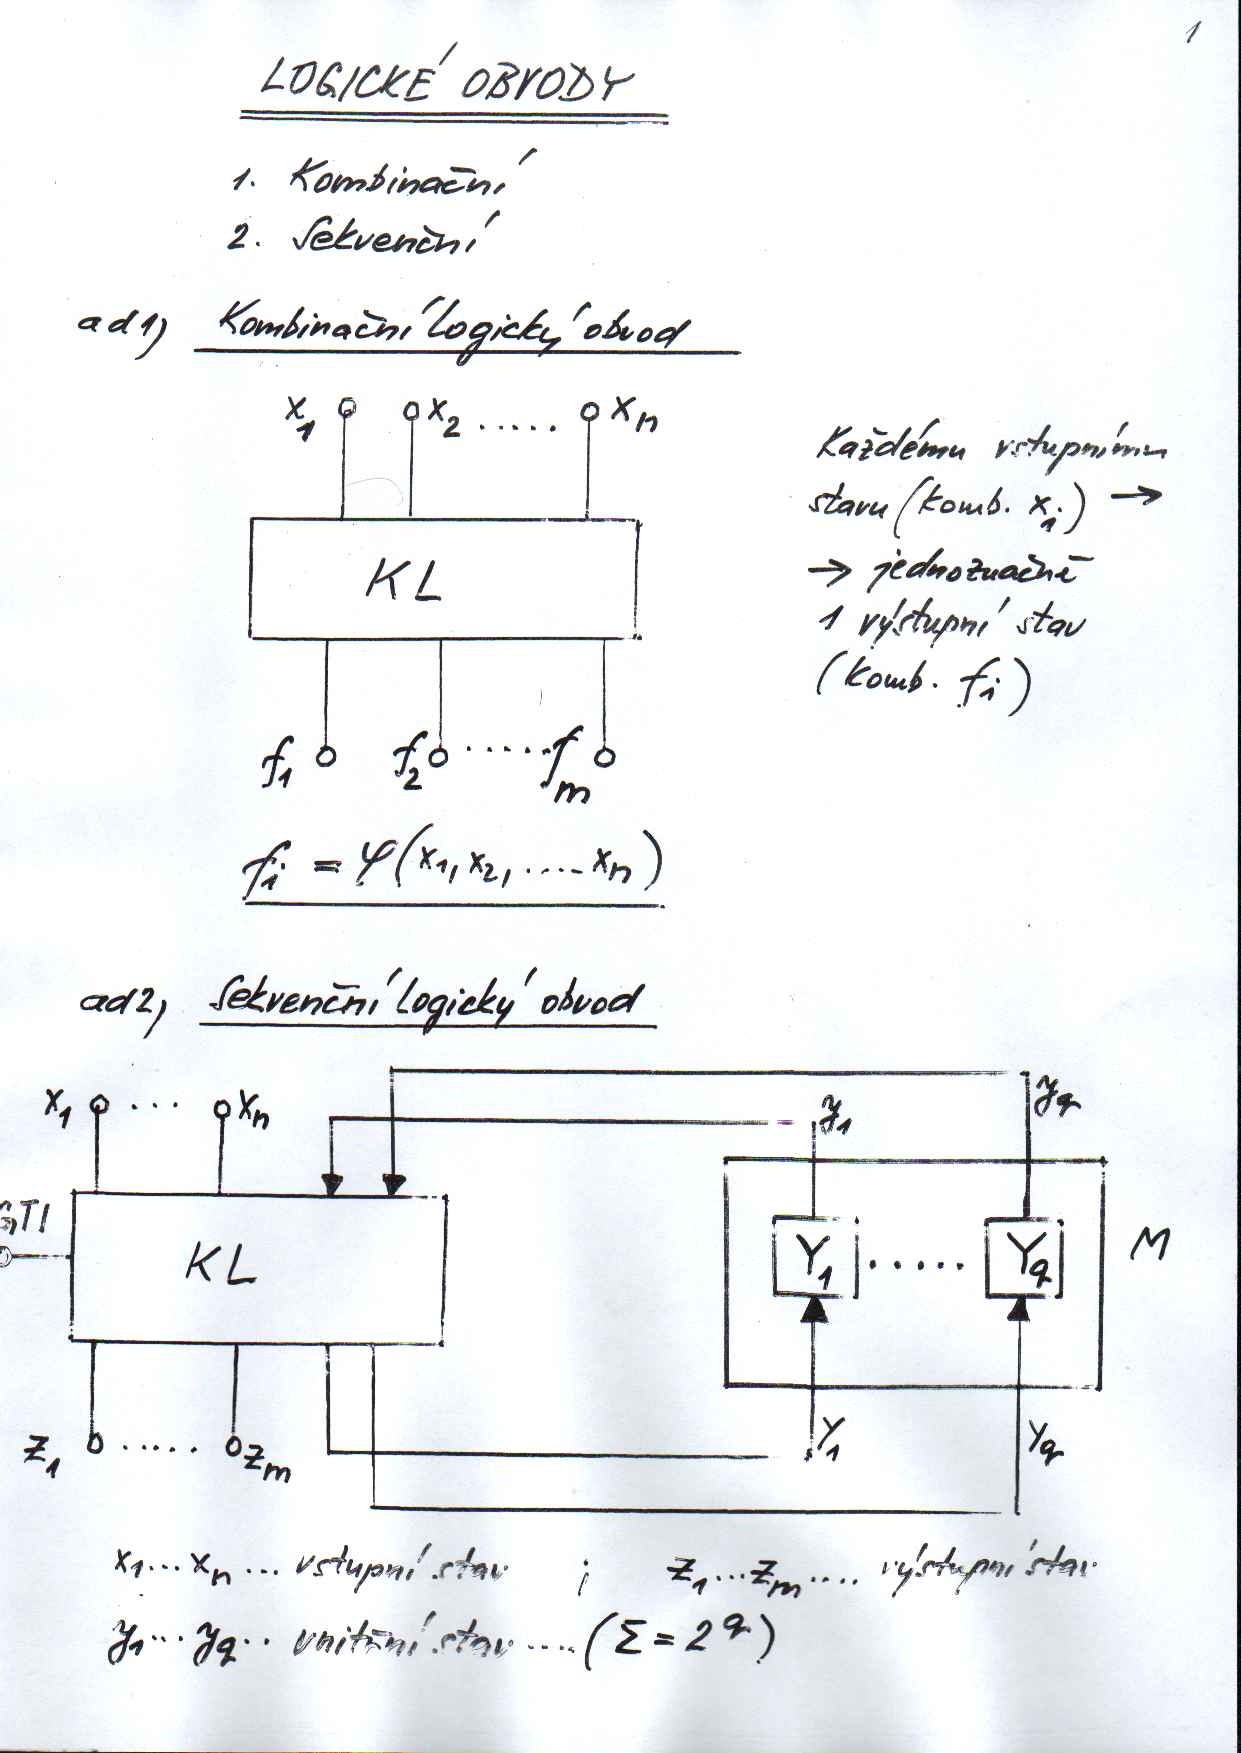 1
LOGICKÉ OBVODY
1. Kombinační
2. Sekvenční
ad1) Kombinační logický obvod
x1 x2 ..... xn
Každému vstupnímu
stavu (komb. xi) →
→ jednoznačně
1 výstupní stav
(komb. fi)
KL
f1 f2 ..... fm
fi = φ(x1, x2, .... xn)
ad2) Sekvenční logický obvod
x1 ... xn y1 yq
GTI
KL Y1 ..... Yq M
z1 ..... zm Y1 Yq
x1...xn... vstupní stav ; z1...zm.... výstupní stav
y1...yq.. vnitřní stav ....(Σ = 2^q)